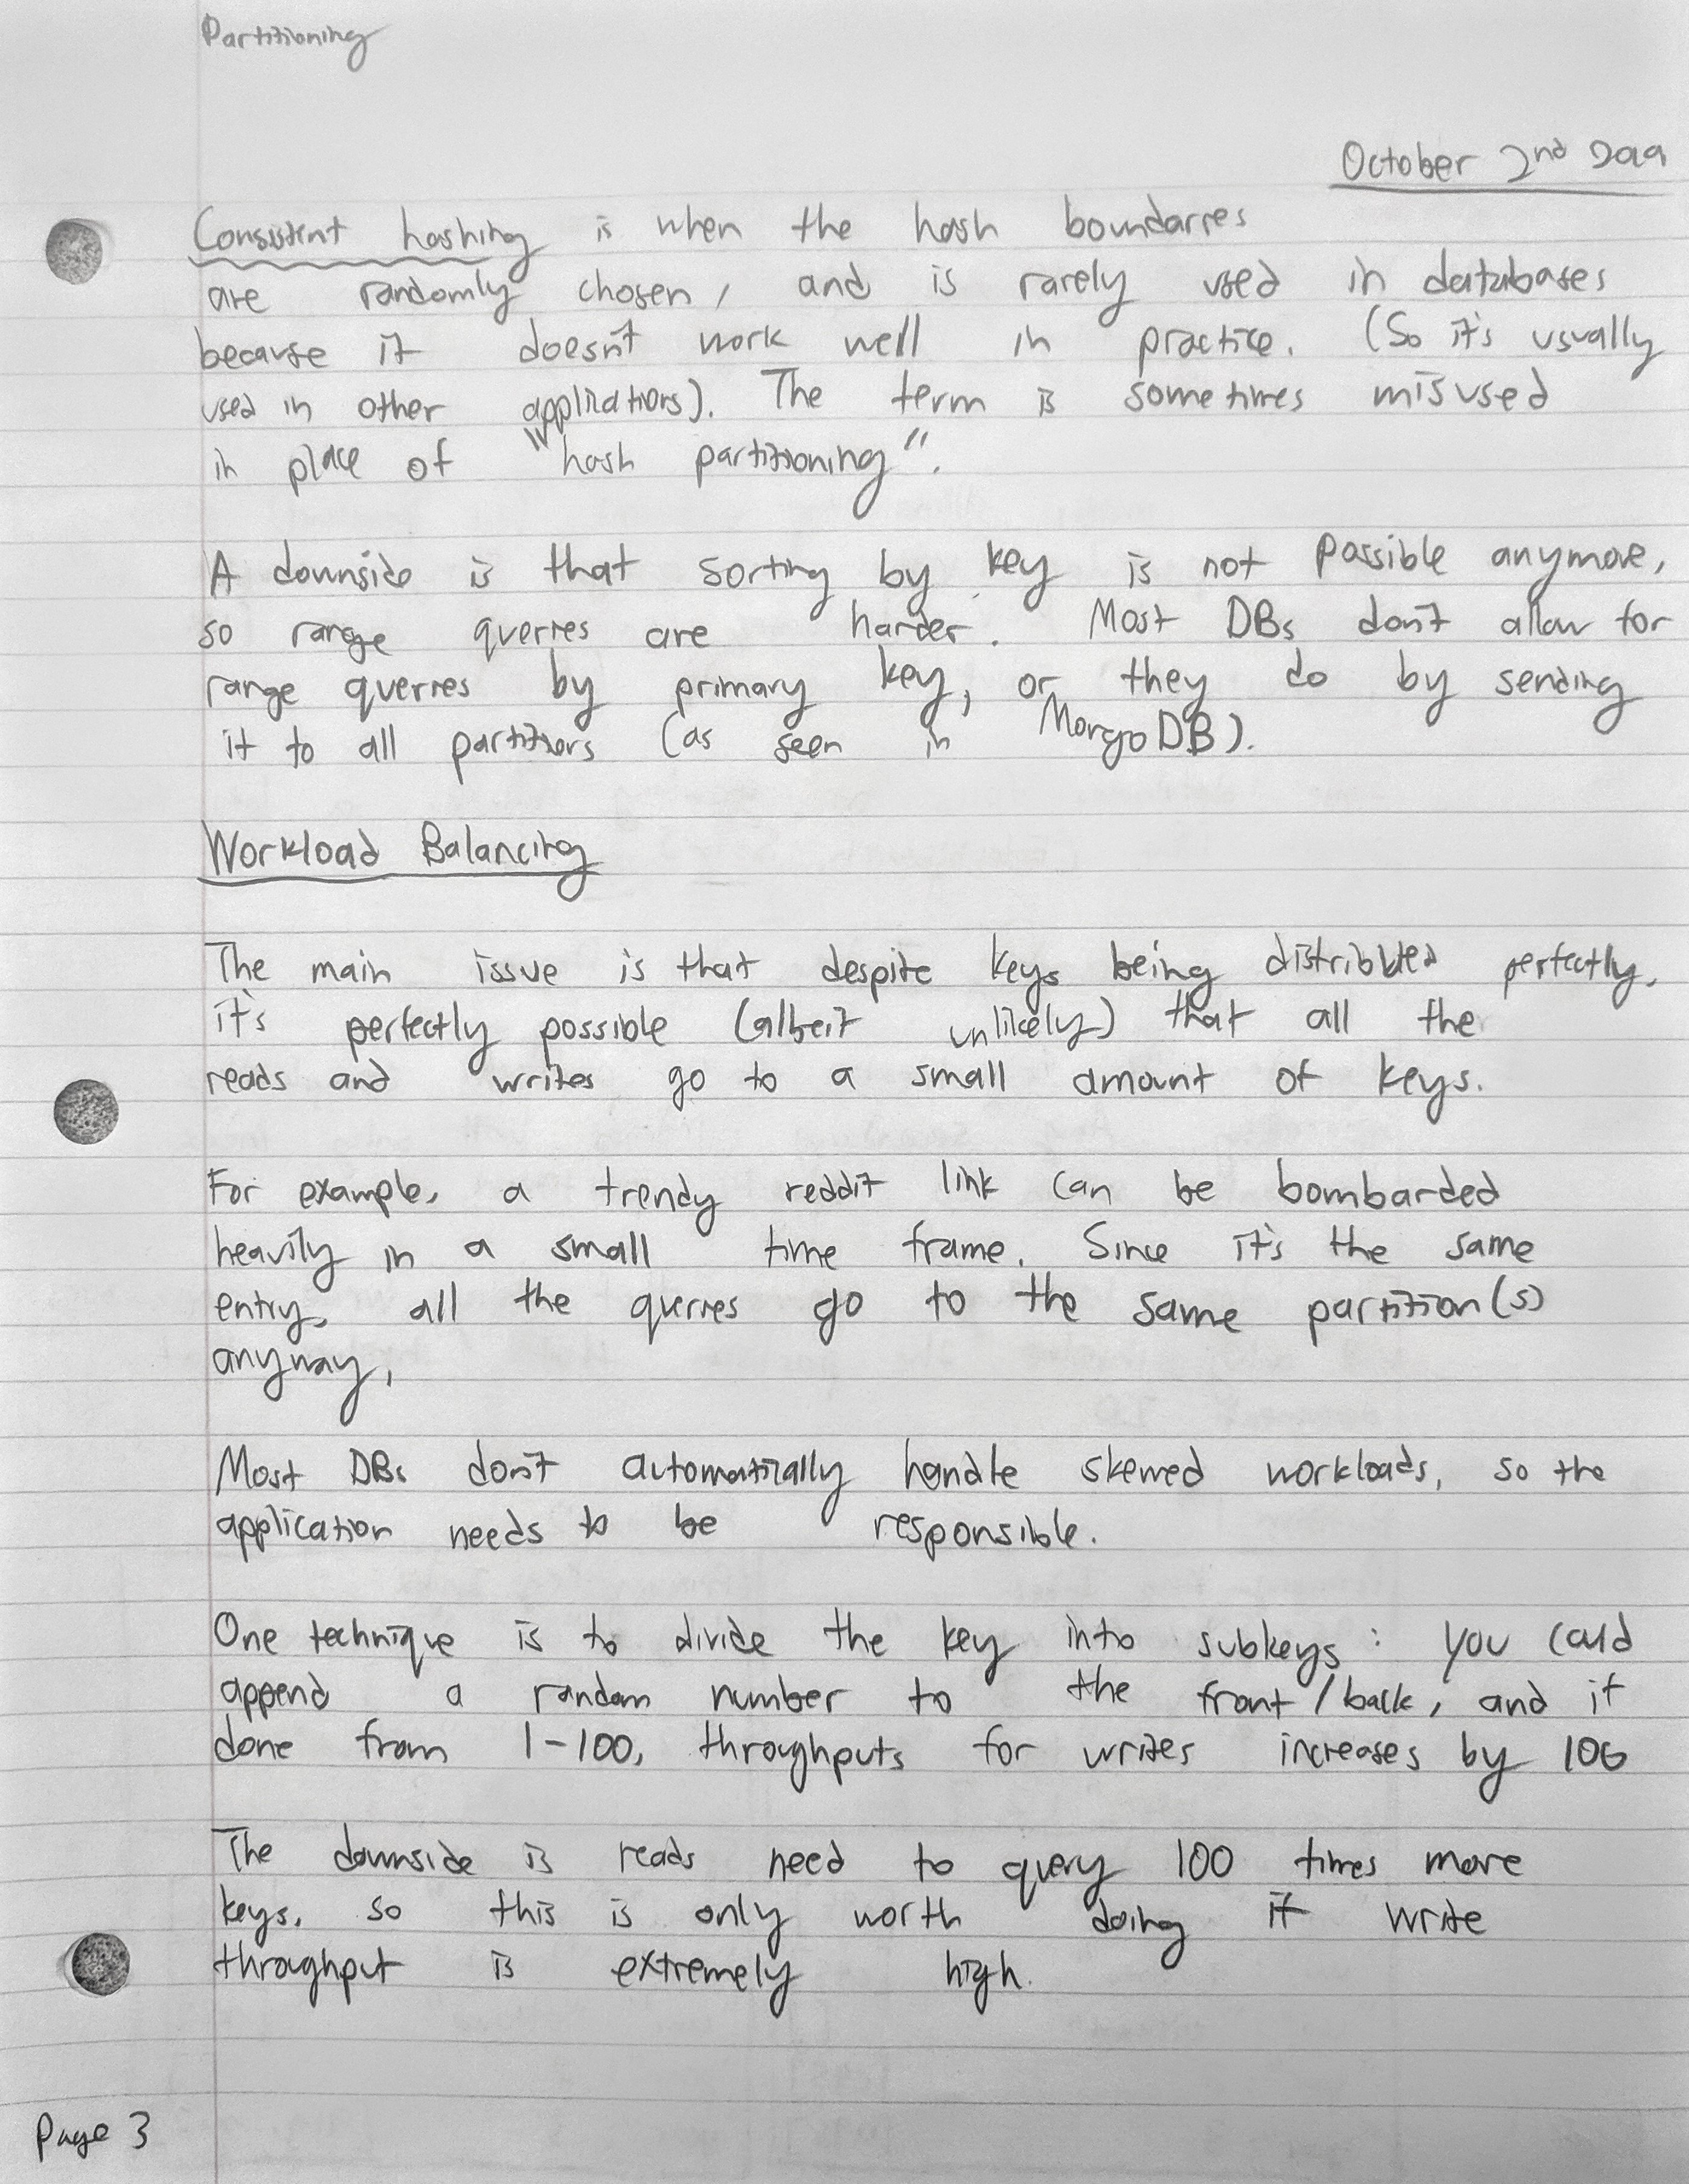 Partitioning
October 2nd 2019
Consistent hashing is when the hash boundarres
are randomly chosen, and is rarely used in databases
because it doesn't work well in practice. (So it's usually
used in other applications). The term is sometimes misused
in place of "hash partitioning".
A downside is that sorting by key is not possible anymore,
so range querres are harder. Most DBs don't allow for
range querres by primary key, or they do by sending
it to all partitions (as seen in MongoDB).
Workload Balancing
The main issue is that despite keys being distribbted perfectly,
it's perfectly possible (albeit unlikely) that all the
reads and writes go to a small amount of keys.
For example, a trendy reddit link can be bombarded
heavily in a small time frame. Since it's the same
entry, all the querres go to the same partition(s)
anyway,
Most DBs don't automatically handle skewed workloads, so the
application needs to be responsible.
One technique is to divide the key into subkeys: you could
append a random number to the front/back, and if
done from 1-100, throughputs for writes increases by 100
The downside is reads need to query 100 times more
keys, so this is only worth doing if write
throughput is extremely high.
Page 3